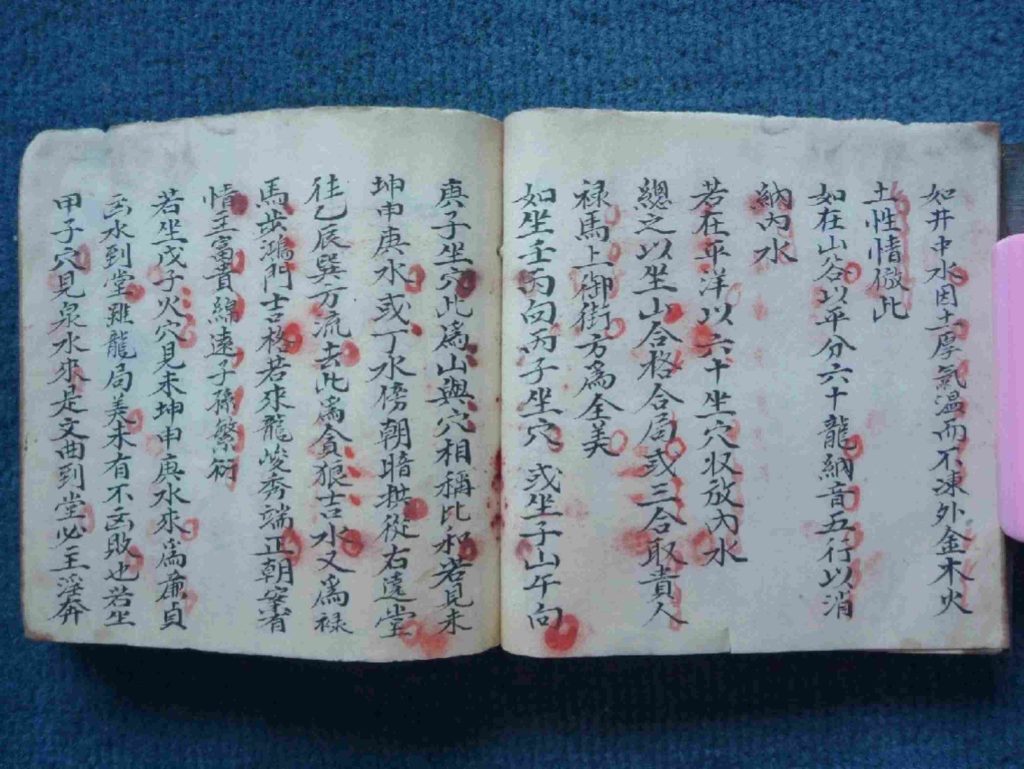 如井中水因土厚氣温而不凍外金木火
土性情倣此
如在山谷以平分六十龍納音五行以消
納內水
若在平洋以六十坐穴收放內水
總之以坐山合格合局或三合取貴人
禄馬上御街方為全美
如坐壬丙向丙子坐穴或坐子山午向
庚子坐穴此為山與穴相稱比和若見未
坤申庚水或丁水傍朝暗拱從右遶堂
往乙辰巽方流去此為貪狼吉水又為禄
馬步鴻門吉格若來龍峻秀端正朝案有
情主富貴綿遠子孫繁衍
若坐戊子火穴見未坤申庚水來為廉貞
凶水到堂雖龍局美未有不凶敗也若坐
甲子穴見泉水來是文曲到堂必主淫奔